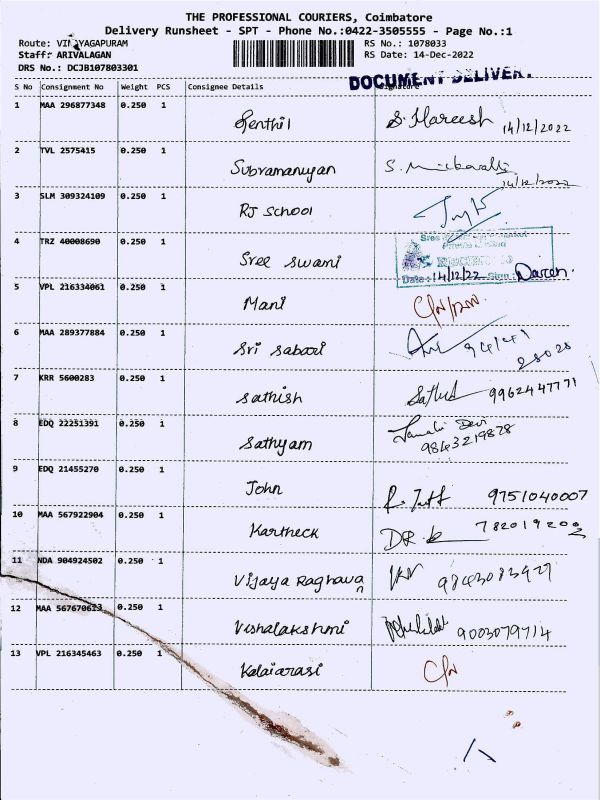 THE PROFESSIONAL COURIERS, Coimbatore
Delivery Runsheet - SPT - Phone No.:0422-3505555 - Page No.:1
Route: VINAYAGAPURAM RS No.: 1078033
Staff: ARIVALAGAN RS Date: 14-Dec-2022
DRS No.: DCJB107803301
DOCUMENT DELIVERY
S No Consignment No Weight PCS Consignee Details Signature
1 MAA 296877348 0.250 1 Senthil S. Hareesh 14/12/2022
2 TVL 2575415 0.250 1 Subramaniyan S. 14/12/2022
3 SLM 309324109 0.250 1 RJ School
4 TRZ 40008690 0.250 1 Sree Swami
Date: 14/12/22 Sign: Daren.
5 VPL 216334061 0.250 1 Mani
6 MAA 289377884 0.250 1 Sri Sabari 94/41 28028
7 KRR 5600283 0.250 1 Sathish 9962447771
8 EDQ 22251391 0.250 1 Sathyam Devi
9843219878
9 EDQ 21455270 0.250 1 John 9751040007
10 MAA 567922904 0.250 1 Kartheck 7820192092
11 NDA 904924502 0.250 1 Vijaya Raghavan 9843083927
12 MAA 567670613 0.250 1 Vishalakshmi 9003079714
13 VPL 216345463 0.250 1 Kalaiarasi